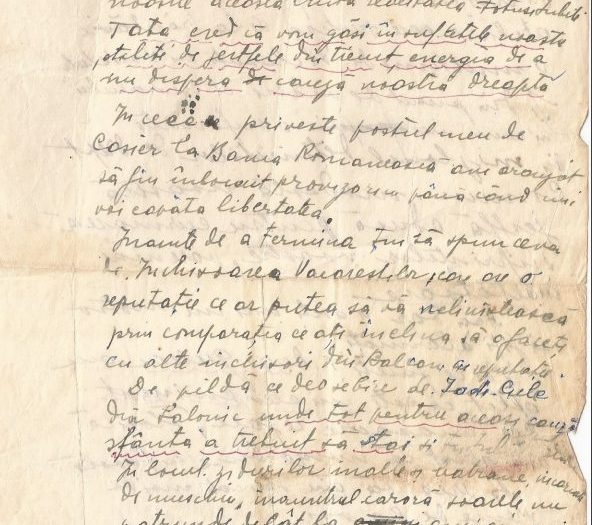 noastre aceasta
Tata cred că vom găsi în sufletele noastre
de jertfele din trecut energia de a
nu dispera de cauza noastră dreaptă
În ceea privește postul meu de
Casier la Banca Românească am aranjat
să fiu înlocuit provizoriu până când îmi
voi căpăta libertatea.
Înainte de a termina țin să spun ceva
de Închisoarea Văcăreștilor, care are o
reputație ce ar putea să vă neliniștească
prin comparația ce ați înclina să o faceți
cu alte închisori din Balcani
De pildă ce deosebire de Iedi-Cule
din Salonic unde tot pentru aceași cauză
sfântă a trebuit să stai și
În locul zidurilor înalte și
de mușchiu, înăuntrul cărora soarele nu
pătrunde decât la